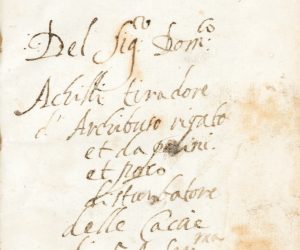 Del Sig.r Dom.co
Achilli tiradore
d'Archibuso rigato
et da palini
et poco
disturbatore
delle Caccie